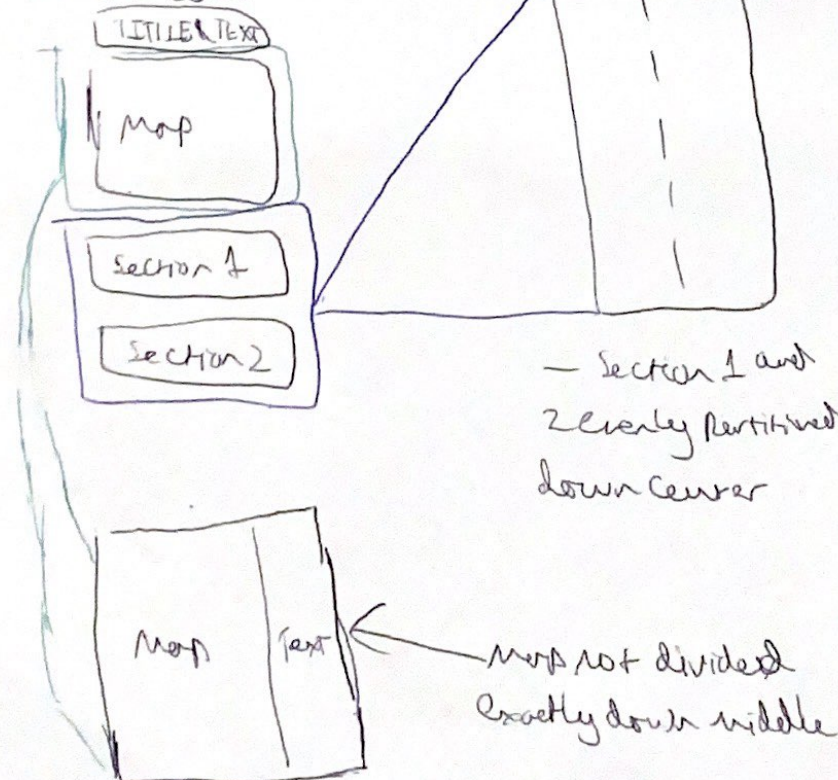 TITLE & TEXT
Map
Section 1
Section 2
— Section 1 and
2 evenly partitioned
down center
Map
Text
Map not divided
exactly down middle